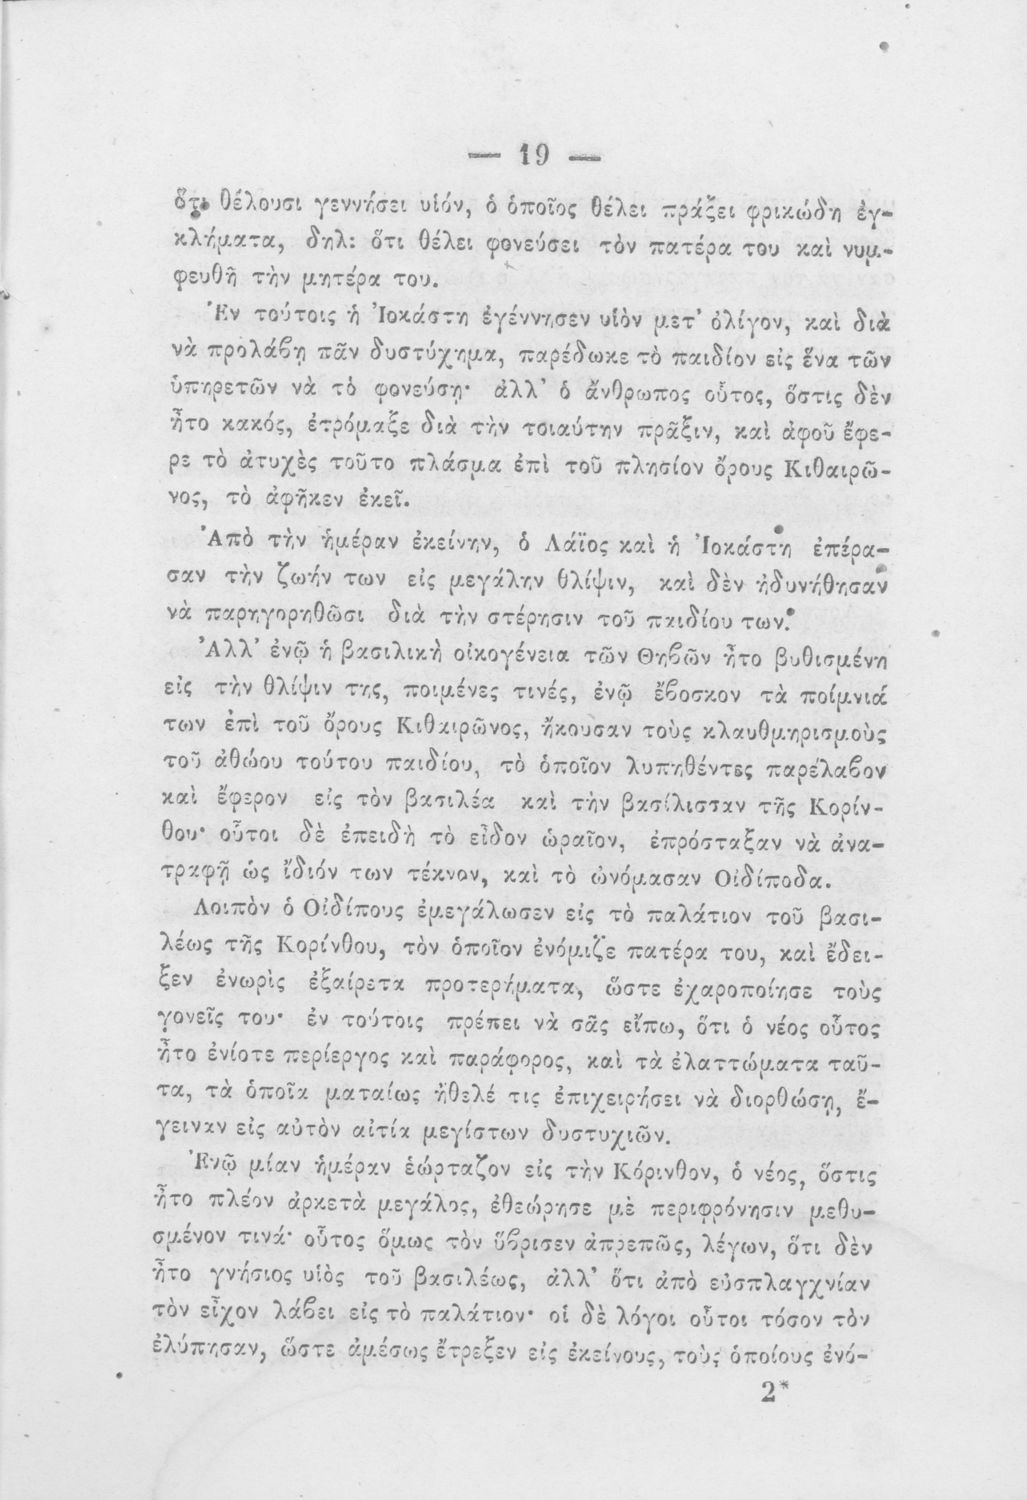 — 19 —
ὅτι θέλουσι γεννήσει υἱόν, ὁ ὁποῖος θέλει πράξει φρικώδη ἐγ-
κλήματα, δηλ: ὅτι θέλει φονεύσει τὸν πατέρα του καὶ νυμ-
φευθῆ τὴν μητέρα του.
Ἐν τούτοις ἡ Ἰοκάστη ἐγέννησεν υἱὸν μετ’ ὀλίγον, καὶ διὰ
νὰ προλάβῃ πᾶν δυστύχημα, παρέδωκε τὸ παιδίον εἰς ἕνα τῶν
ὑπηρετῶν νὰ τὸ φονεύσῃ· ἀλλ’ ὁ ἄνθρωπος οὗτος, ὅστις δὲν
ἦτο κακός, ἐτρόμαξε διὰ τὴν τοιαύτην πρᾶξιν, καὶ ἀφοῦ ἔφε-
ρε τὸ ἀτυχὲς τοῦτο πλάσμα ἐπὶ τοῦ πλησίον ὄρους Κιθαιρῶ-
νος, τὸ ἀφῆκεν ἐκεῖ.
Ἀπὸ τὴν ἡμέραν ἐκείνην, ὁ Λάϊος καὶ ἡ Ἰοκάστη ἐπέρα-
σαν τὴν ζωήν των εἰς μεγάλην θλίψιν, καὶ δὲν ἠδυνήθησαν
νὰ παρηγορηθῶσι διὰ τὴν στέρησιν τοῦ παιδίου των.
Ἀλλ’ ἐνῷ ἡ βασιλικὴ οἰκογένεια τῶν Θηβῶν ἦτο βυθισμένη
εἰς τὴν θλίψιν της, ποιμένες τινές, ἐνῷ ἔβοσκον τὰ ποίμνιά
των ἐπὶ τοῦ ὄρους Κιθαιρῶνος, ἤκουσαν τοὺς κλαυθμηρισμοὺς
τοῦ ἀθώου τούτου παιδίου, τὸ ὁποῖον λυπηθέντες παρέλαβον
καὶ ἔφερον εἰς τὸν βασιλέα καὶ τὴν βασίλισσαν τῆς Κορίν-
θου· οὗτοι δὲ ἐπειδὴ τὸ εἶδον ὡραῖον, ἐπρόσταξαν νὰ ἀνα-
τραφῇ ὡς ἴδιόν των τέκνον, καὶ τὸ ὠνόμασαν Οἰδίποδα.
Λοιπὸν ὁ Οἰδίπους ἐμεγάλωσεν εἰς τὸ παλάτιον τοῦ βασι-
λέως τῆς Κορίνθου, τὸν ὁποῖον ἐνόμιζε πατέρα του, καὶ ἔδει-
ξεν ἐνωρὶς ἐξαίρετα προτερήματα, ὥστε ἐχαροποίησε τοὺς
γονεῖς του· ἐν τούτοις πρέπει νὰ σᾶς εἴπω, ὅτι ὁ νέος οὗτος
ἦτο ἐνίοτε περίεργος καὶ παράφορος, καὶ τὰ ἐλαττώματα ταῦ-
τα, τὰ ὁποῖα ματαίως ἤθελέ τις ἐπιχειρήσει νὰ διορθώσῃ, ἔ-
γειναν εἰς αὐτὸν αἰτία μεγίστων δυστυχιῶν.
Ἐνῷ μίαν ἡμέραν ἑώρταζον εἰς τὴν Κόρινθον, ὁ νέος, ὅστις
ἦτο πλέον ἀρκετὰ μεγάλος, ἐθεώρησε μὲ περιφρόνησιν μεθυ-
σμένον τινά· οὗτος ὅμως τὸν ὕβρισεν ἀπρεπῶς, λέγων, ὅτι δὲν
ἦτο γνήσιος υἱὸς τοῦ βασιλέως, ἀλλ’ ὅτι ἀπὸ εὐσπλαγχνίαν
τὸν εἶχον λάβει εἰς τὸ παλάτιον· οἱ δὲ λόγοι οὗτοι τόσον τὸν
ἐλύπησαν, ὥστε ἀμέσως ἔτρεξεν εἰς ἐκείνους, τοὺς ὁποίους ἐνό-
2*